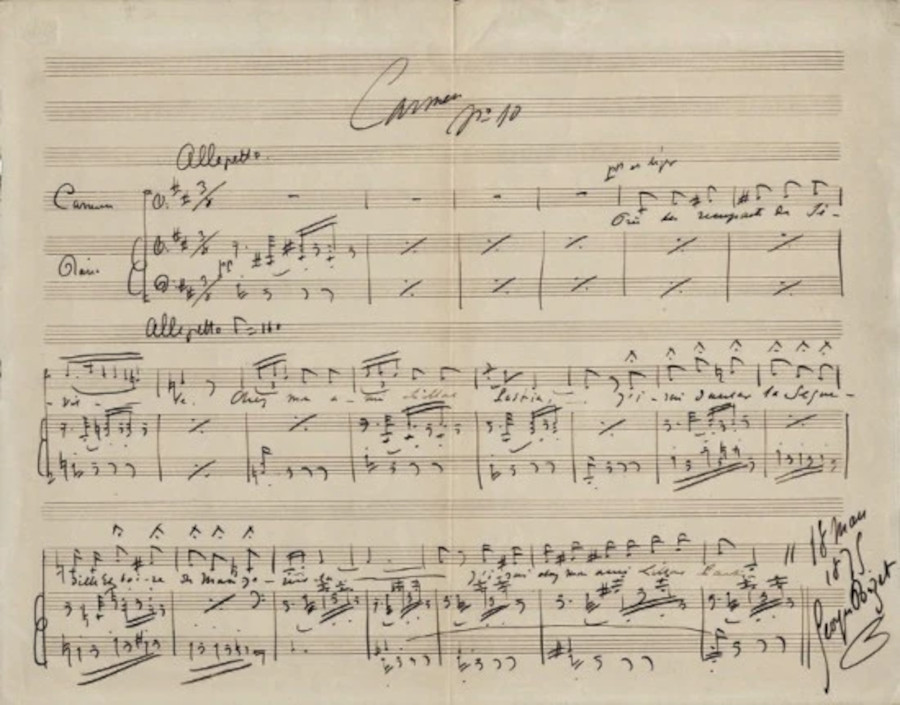 Carmen
No 10
Allegretto.
Carmen
Piano
pp
Près des remparts de Sé-
Allegretto = 160
- vil - le, Chez mon a - mi Lillas Pastia, J'i - rai danser laSégue -
dille et boire du Manza - nilla J'i - rai chez mon ami Lillas Pastia
18 Mars
1875
Georges Bizet